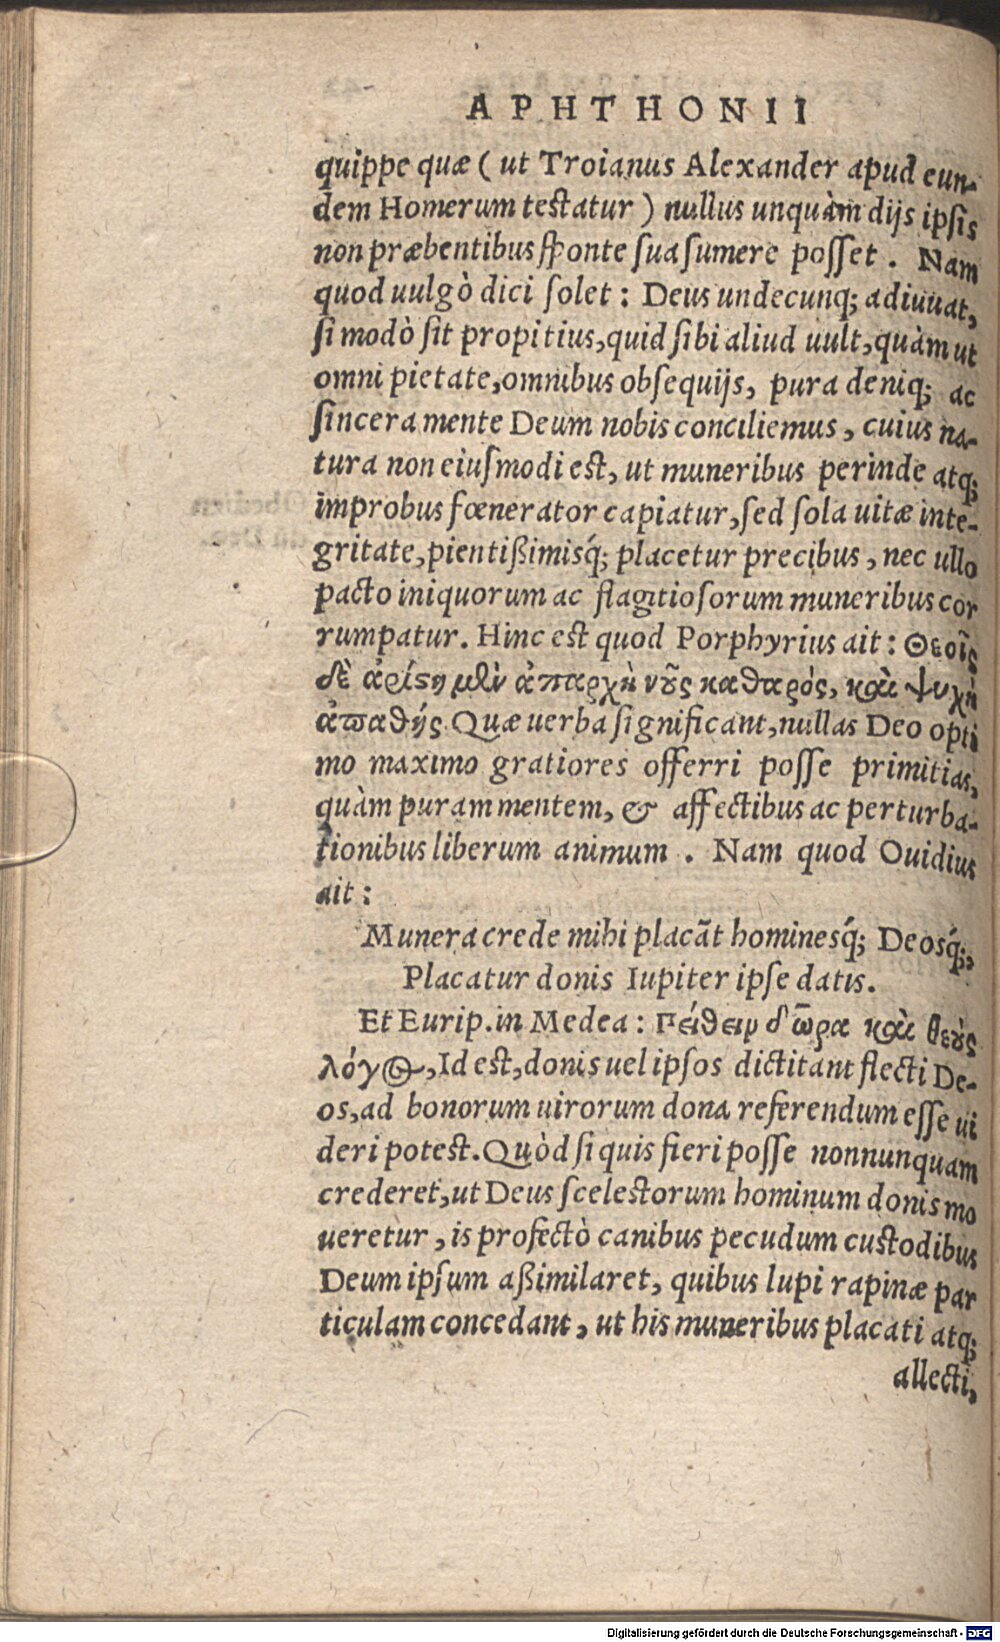 APHTHONII
quippe quæ (ut Troianus Alexander apud eun-
dem Homerum testatur) nullus unquàm dijs ipsis
non præbentibus sponte sua sumere posset. Nam
quod uulgò dici solet: Deus undecunq; adiuuat,
si modò sit propitius, quid sibi aliud uult, quàm ut
omni pietate, omnibus obsequijs, pura deniq; ac
sincera mente Deum nobis conciliemus, cuius na-
tura non eiusmodi est, ut muneribus perinde atq;
improbus fœnerator capiatur, sed sola uitæ inte-
gritate, pientißimisq́; placetur precibus, nec ullo
pacto iniquorum ac flagitiosorum muneribus cor
rumpatur. Hinc est quod Porphyrius ait: Θεοῖς
δὲ ἀρίστη μὲν ἀπαρχὴ νοῦς καθαρός, καὶ ψυχὴ
ἀπαθής. Quæ uerba significant, nullas Deo opti
mo maximo gratiores offerri posse primitias,
quàm puram mentem, & affectibus ac perturba-
tionibus liberum animum. Nam quod Ouidius
ait:
Munera crede mihi placãt hominesq́; Deosq́;,
Placatur donis Iupiter ipse datis.
Et Eurip. in Medea: Πείθειν δῶρα καὶ θεοὺς
λόγος, Id est, donis uel ipsos dictitant flecti De-
os, ad bonorum uirorum dona referendum esse ui
deri potest. Quòd si quis fieri posse nonnunquam
crederet, ut Deus scelestorum hominum donis mo
ueretur, is profectò canibus pecudum custodibus
Deum ipsum aßimilaret, quibus lupi rapinæ par
ticulam concedant, ut his muneribus placati atq;
allecti,
Digitalisierung gefördert durch die Deutsche Forschungsgemeinschaft - DFG